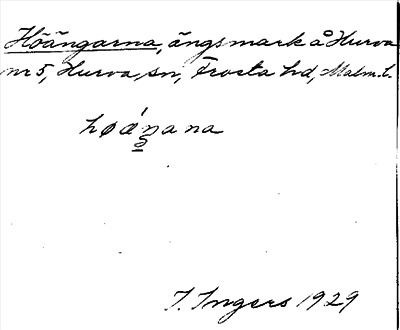 Höängarna, ängsmark å Hurva
nr 5, Hurva, sn, Frosta hd, Malm. l.
høáŋana
I. Ingers 1929